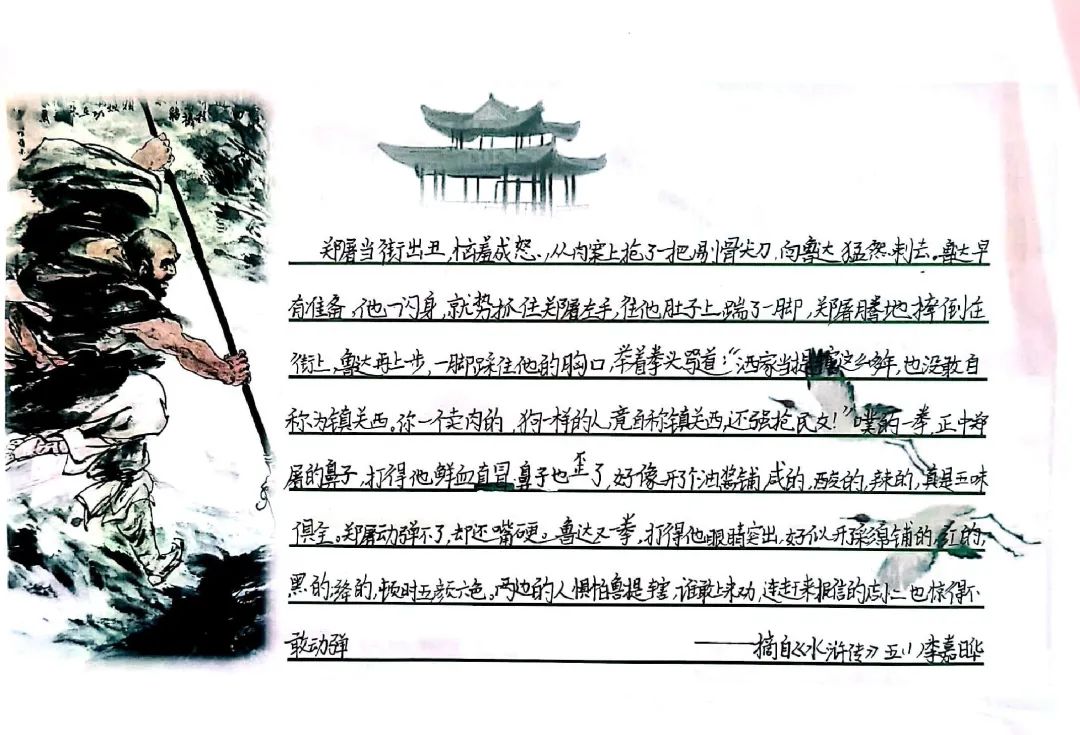 郑屠当街出丑,恼羞成怒,从肉案上抢了一把剔骨尖刀,向鲁达猛然刺去。鲁达早
有准备。他一闪身,就势抓住郑屠左手,往他肚子上踹了一脚,郑屠腾地摔倒在
街上,鲁达再上一步,一脚踩住他的胸口,举着拳头骂道:“洒家当提辖这么多年,也没敢自
称为镇关西。你一个卖肉的,狗一样的人,竟自称镇关西,还强抢民女!”噗的一拳,正中郑
屠的鼻子,打得他鲜血直冒鼻子也歪了,好像开个油酱铺咸的,酸的,辣的,真是五味
俱全。郑屠动弹不了,却还嘴硬。鲁达又一拳,打得他眼睛突出,好似开彩绵铺的,红的,
黑的,绛的,顿时五颜六色。两边的人惧怕鲁提辖,谁敢上来劝,连赶来报信的店小二也惊得不
敢动弹
——摘自《水浒传》五(1)李嘉晔